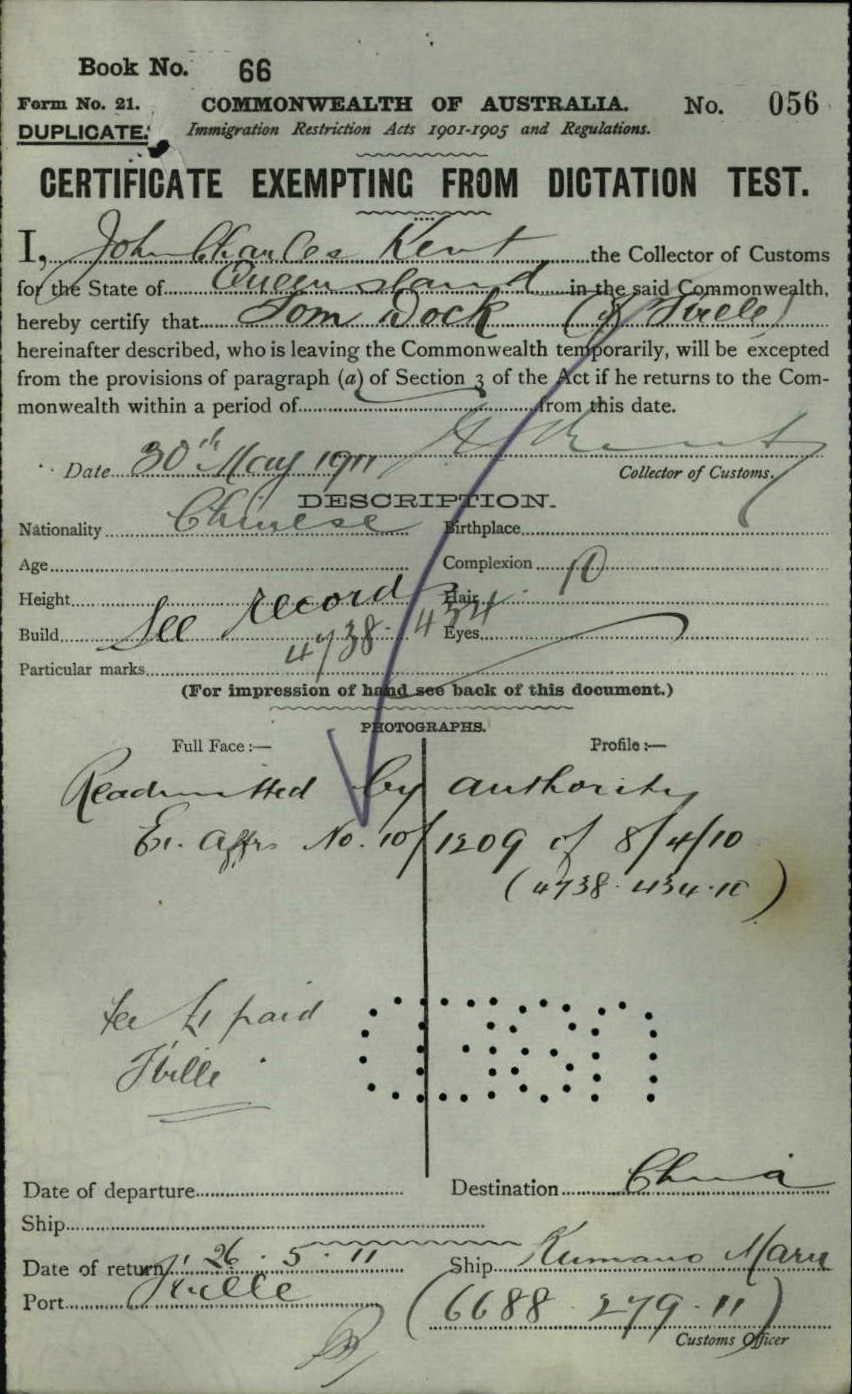 Book No. 66
Form No. 21. COMMONWEALTH OF AUSTRALIA. No. 056
DUPLICATE. Immigration Restriction Acts 1901-1905 and Regulations.
CERTIFICATE EXEMPTING FROM DICTATION TEST.
I, John Charles Kent the Collector of Customs
for the State of Queensland in the said Commonwealth,
hereby certify that Tom Dock (of T'ville)
hereinafter described, who is leaving the Commonwealth temporarily, will be excepted
from the provisions of paragraph (a) of Section 3 of the Act if he returns to the Com-
monwealth within a period of from this date.
Date 30th May 1911
Collector of Customs.
DESCRIPTION.
Nationality Chinese Birthplace
Age Complexion
Height Hair
See record
Build 4738. 434 Eyes
10
Particular marks
(For impression of hand see back of this document.)
PHOTOGRAPHS.
Full Face :— Profile :—
Readmitted by authority
Ex. Affrs No. 10/1209 of 8/4/10
(4738. 434.10)
fee £1 paid
T'ville
Date of departure Destination China
Ship
Date of return 26.5.11 Ship Kumano Maru
Port T'ville (6688. 279.11)
Customs Officer